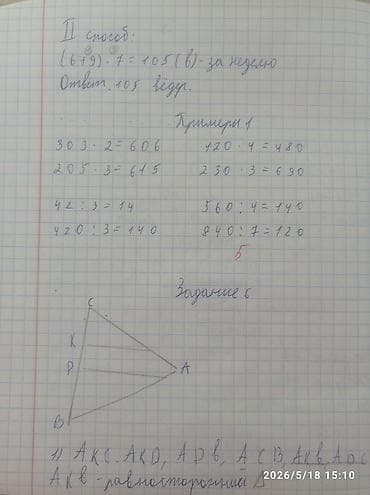 II способ:
(6+9)·7=105(в)-за неделю
Ответ: 105 вёдр.
Примеры 1
303·2=606 120·4=480
205·3=615 230·3=690
42:3=14 560:4=140
420:3=140 840:7=120
5
Задание 6
C
K
P A
B
1) AKC, AKD, ADB, ACB, AKB, ADC
AKB-равносторонний Δ
2026/5/18 15:10